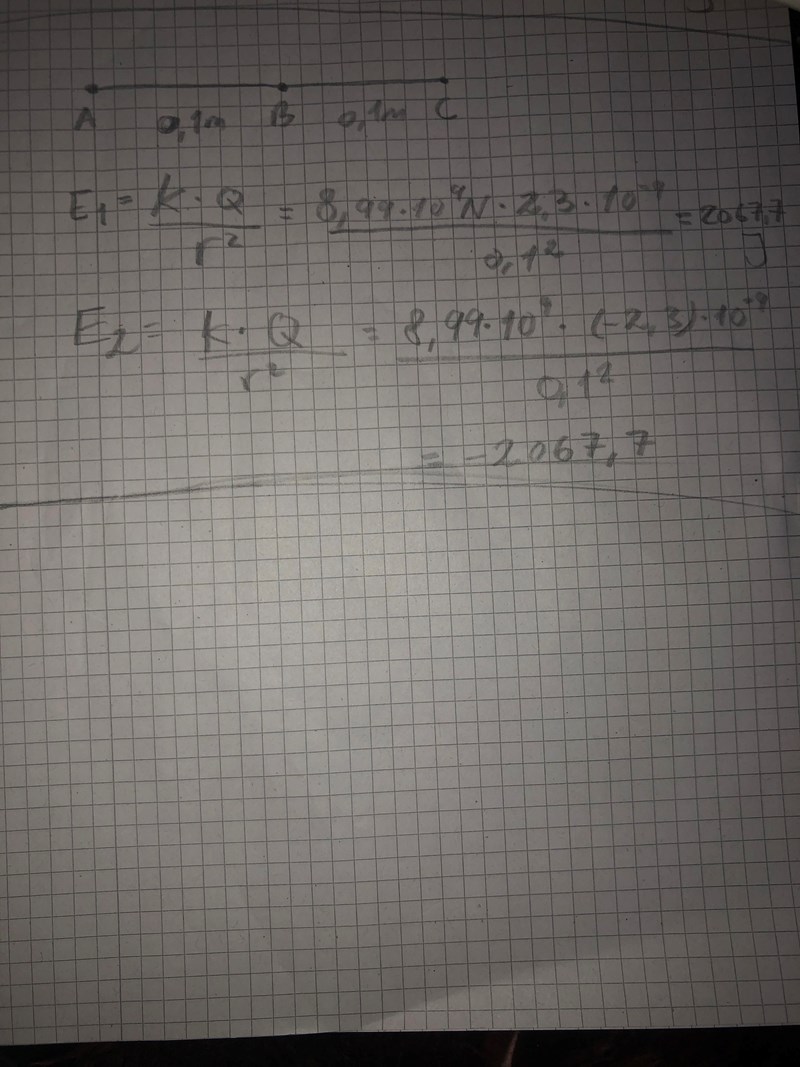 A 0,1m B 0,1m C
E₁ = K · Q / r² = 8,99·10⁹N · 2,3 · 10⁻⁹ / 0,1² = 2067,7 J
E₂ = K · Q / r² = 8,99·10⁹ · (-2,3)·10⁻⁹ / 0,1²
= -2067,7